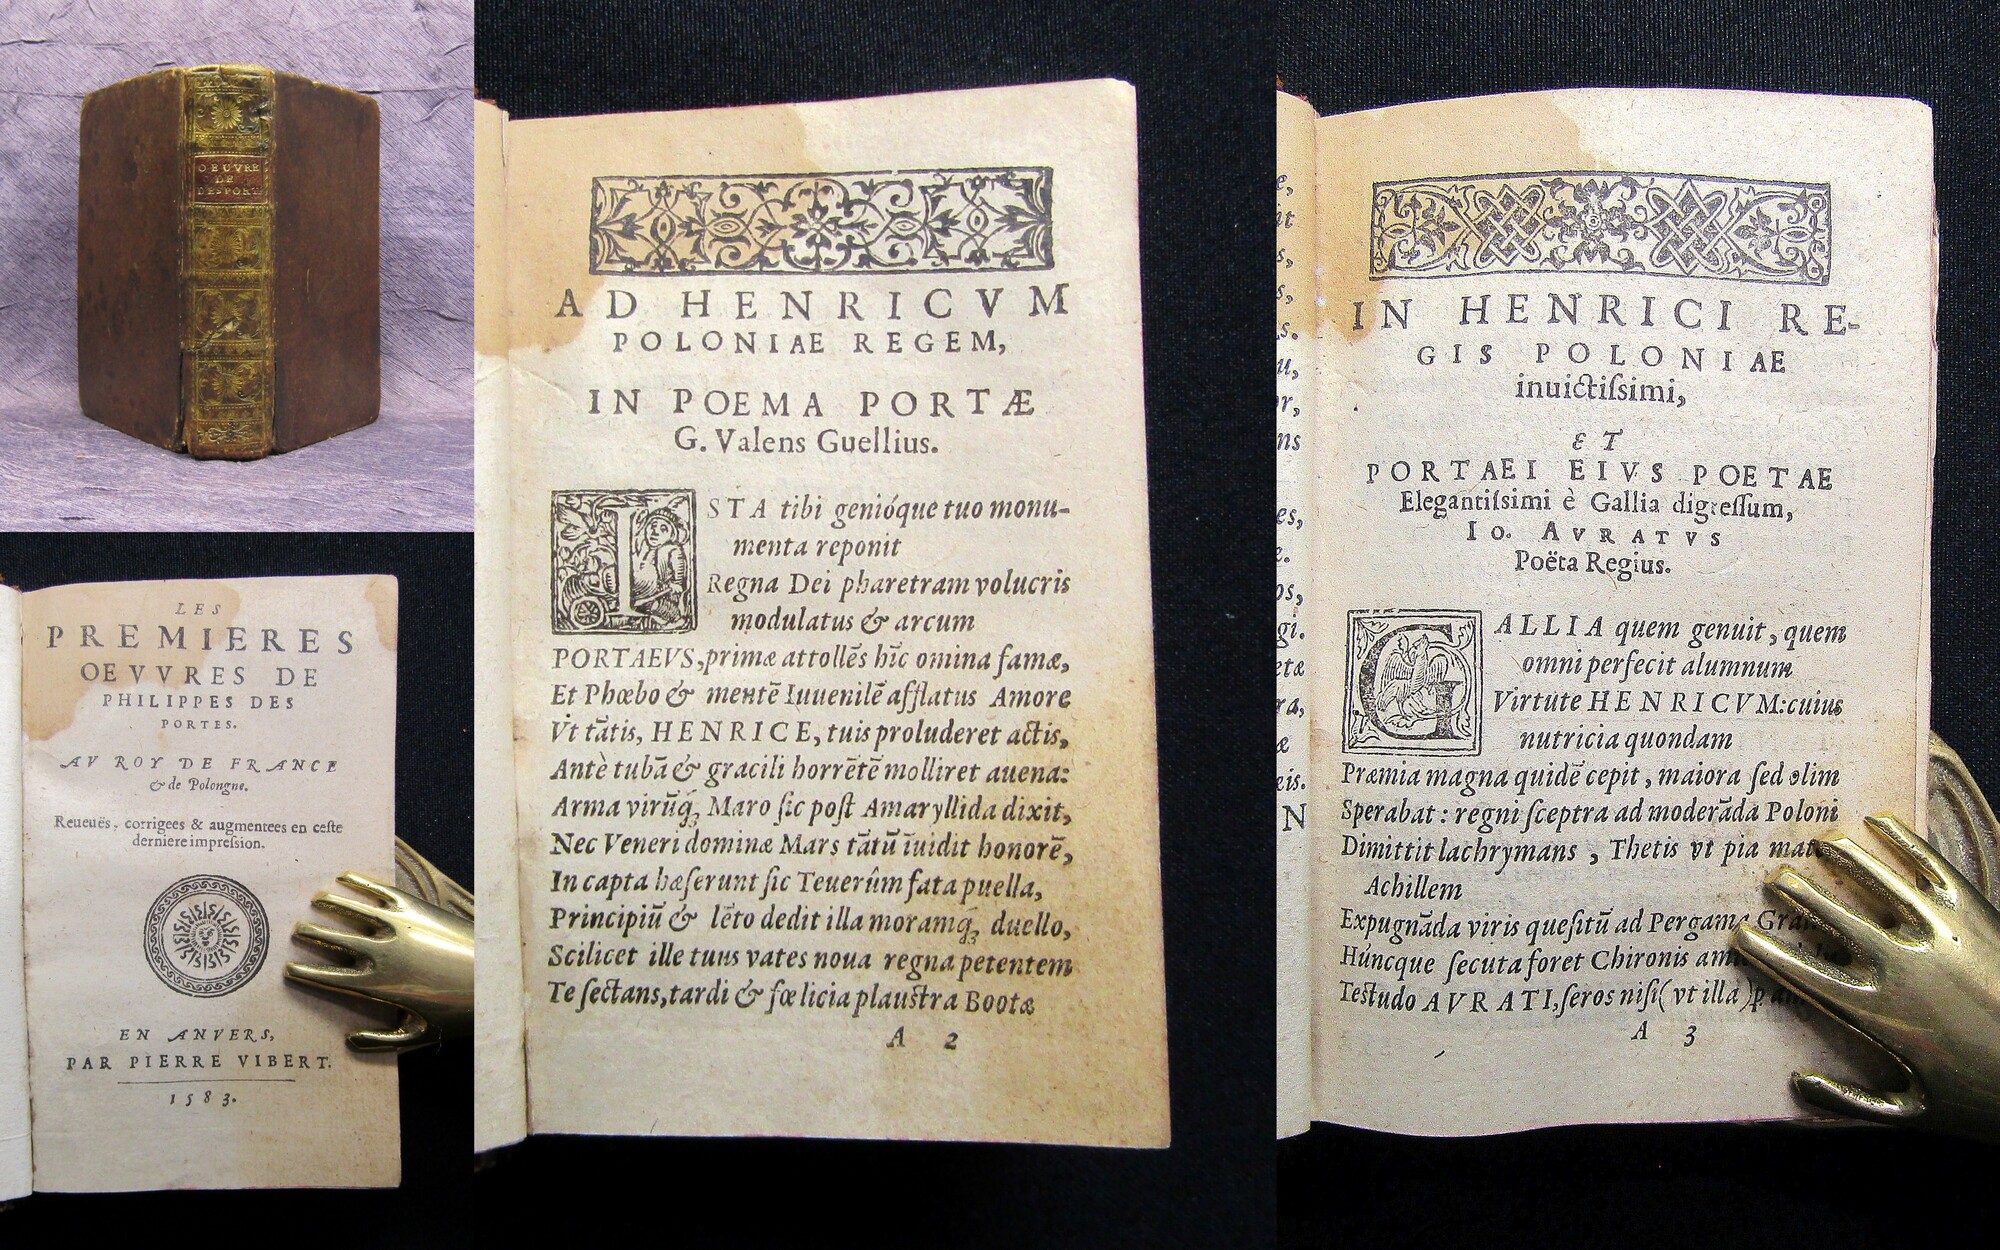 OEUVRE
DE
DESPORT
LES
PREMIERES
OEVVRES DE
PHILIPPES DES
PORTES.
AV ROY DE FRANCE
& de Polongne.
Reueuës, corrigees & augmentees en ceſte
derniere impreſsion.
EN ANVERS,
PAR PIERRE VIBERT.
1583.
AD HENRICVM
POLONIAE REGEM,
IN POEMA PORTÆ
G. Valens Guellius.
ISTA tibi genióque tuo monu-
menta reponit
Regna Dei pharetram volucris
modulatus & arcum
PORTAEVS, primæ attollẽs hîc omina famæ,
Et Phœbo & mentẽ Iuuenilẽ afflatus Amore
Vt tãtis, HENRICE, tuis proluderet actis,
Antè tubã & gracili horrẽtẽ molliret auena:
Arma virũq; Maro ſic poſt Amaryllida dixit,
Nec Veneri dominæ Mars tãtũ ĩuidit honorẽ,
In capta hæſerunt ſic Teucrûm fata puella,
Principiũ & lẽto dedit illa moramq; duello,
Scilicet ille tuus vates noua regna petentem
Te ſectans, tardi & fœlicia plauſtra Bootæ
A 2
e,
nt
s,
s,
s.
u,
r,
ns
es,
e.
os,
gi.
etæ
ra,
æ
eis.
N
IN HENRICI RE-
GIS POLONIAE
inuictiſsimi,
ET
PORTAEI EIVS POETAE
Elegantiſsimi è Gallia digreſſum,
Io. AVRATVS
Poëta Regius.
GALLIA quem genuit, quem
omni perfecit alumnum
Virtute HENRICVM: cuius
nutricia quondam
Præmia magna quidẽ cepit, maiora ſed olim
Sperabat: regni ſceptra ad moderãda Poloni
Dimittit lachrymans, Thetis vt pia
Achillem
Expugnãda viris queſitũ ad Pergama
Húncque ſecuta foret Chironis
Teſtudo AVRATI, ſeros niſi (vt illa)
A 3